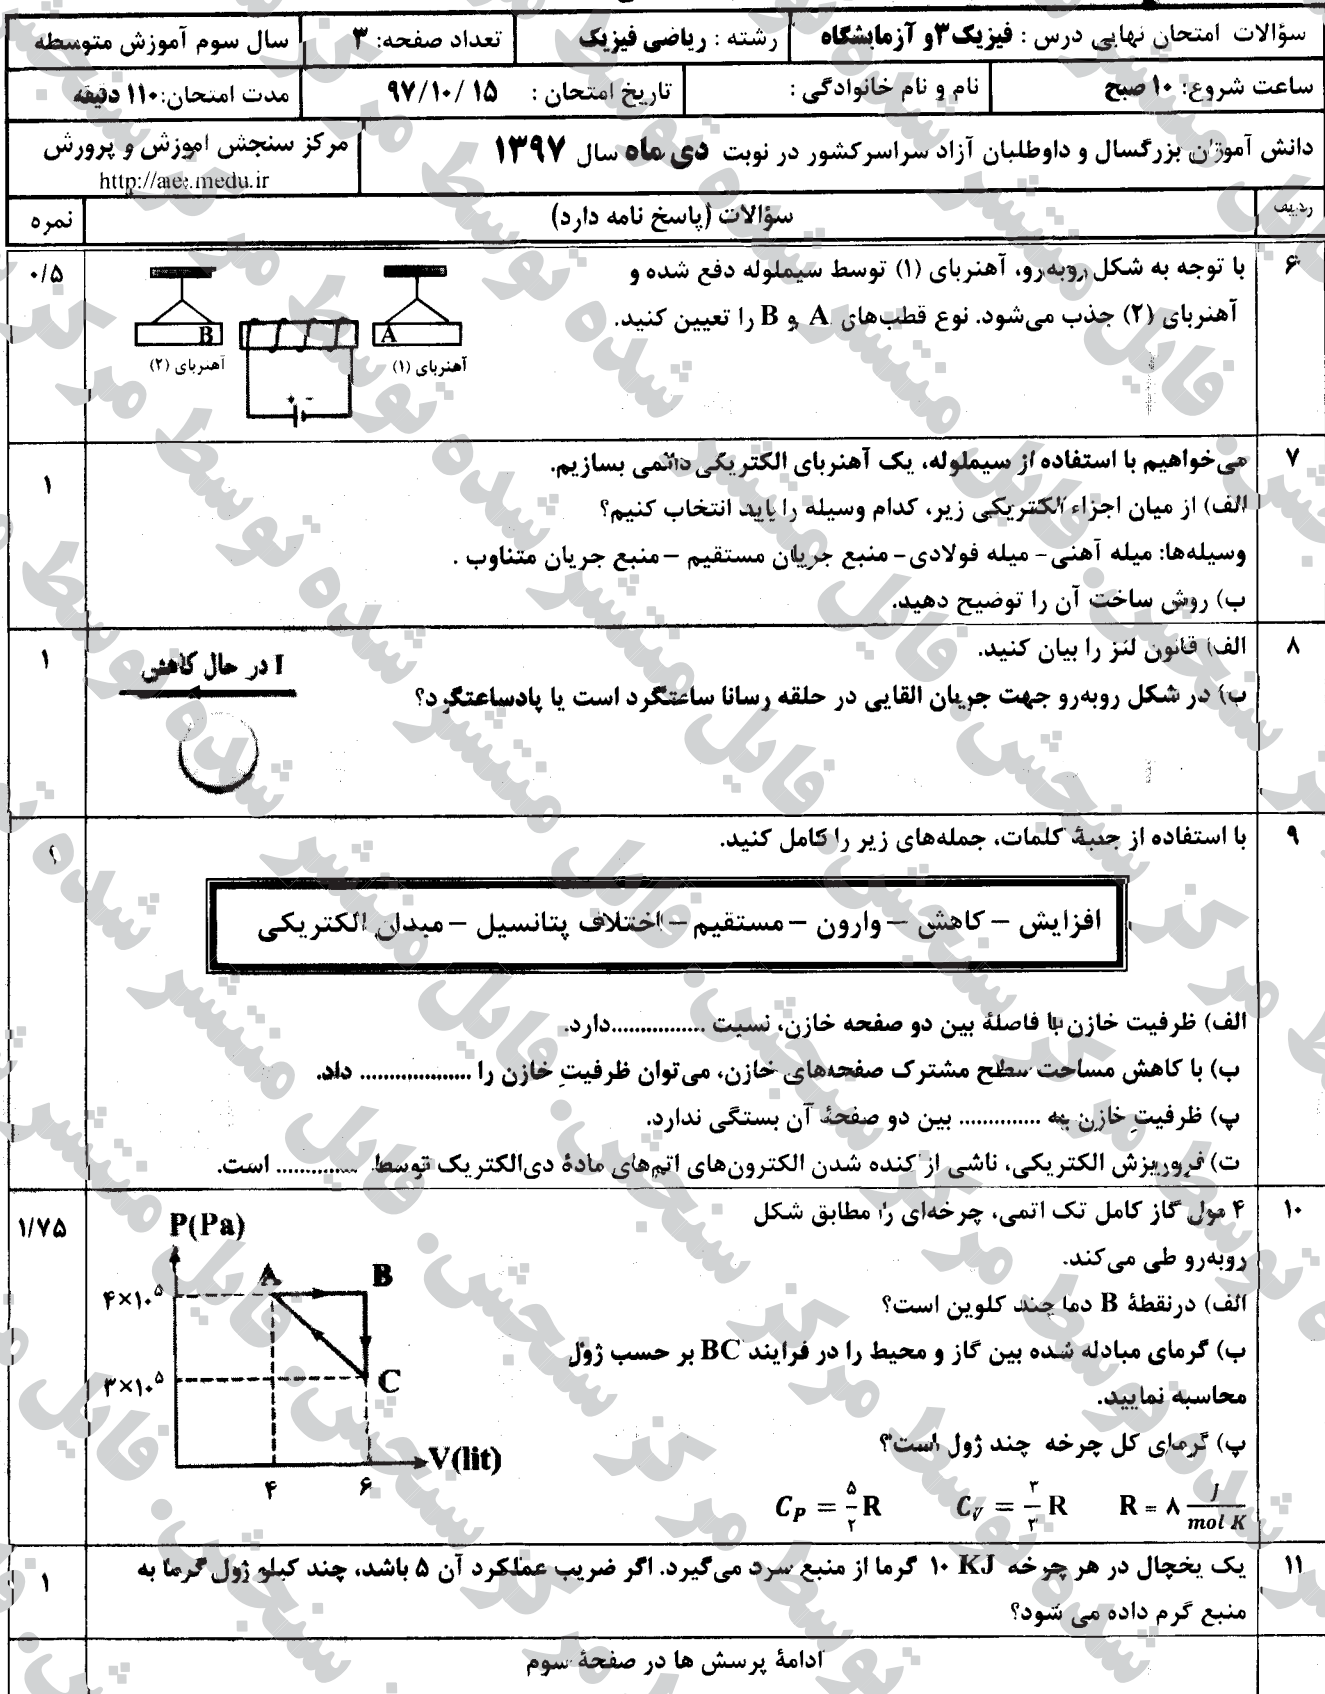 سؤالات امتحان نهایی درس : فیزیک ۳و آزمایشگاه
رشته : ریاضی فیزیک
تعداد صفحه: ۳
سال سوم آموزش متوسطه
ساعت شروع: ۱۰ صبح
نام و نام خانوادگی :
تاریخ امتحان : ۹۷/۱۰/۱۵
مدت امتحان:۱۱۰ دقیقه
دانش آموزان بزرگسال و داوطلبان آزاد سراسرکشور در نوبت دی ماه سال ۱۳۹۷
مرکز سنجش آموزش و پرورش
http://aee.medu.ir
ردیف
سؤالات (پاسخ نامه دارد)
نمره
۶
با توجه به شکل روبه‌رو، آهنربای (۱) توسط سیملوله دفع شده و
آهنربای (۲) جذب می‌شود. نوع قطب‌های A و B را تعیین کنید.
۰/۵
B
A
آهنربای (۲)
آهنربای (۱)
+ -
۷
می‌خواهیم با استفاده از سیملوله، یک آهنربای الکتریکی دائمی بسازیم.
الف) از میان اجزاء الکتریکی زیر، کدام وسیله را باید انتخاب کنیم؟
وسیله‌ها: میله آهنی- میله فولادی- منبع جریان مستقیم – منبع جریان متناوب .
ب) روش ساخت آن را توضیح دهید.
۱
۸
الف) قانون لنز را بیان کنید.
ب) در شکل روبه‌رو جهت جریان القایی در حلقه رسانا ساعتگرد است یا پادساعتگرد؟
۱
I در حال کاهش
۹
با استفاده از جعبهٔ کلمات، جمله‌های زیر را کامل کنید.
افزایش – کاهش – وارون – مستقیم – اختلاف پتانسیل – میدان الکتریکی
الف) ظرفیت خازن با فاصلهٔ بین دو صفحه خازن، نسبت ................دارد.
ب) با کاهش مساحت سطح مشترک صفحه‌های خازن، می‌توان ظرفیتِ خازن را ................... داد.
پ) ظرفیتِ خازن به .............. بین دو صفحهٔ آن بستگی ندارد.
ت) فروریزش الکتریکی، ناشی از کنده شدن الکترون‌های اتم‌های مادهٔ دی‌الکتریک توسط .............. است.
۱۰
۴ مول گاز کامل تک اتمی، چرخه‌ای را مطابق شکل
روبه‌رو طی می‌کند.
الف) درنقطهٔ B دما چند کلوین است؟
ب) گرمای مبادله شده بین گاز و محیط را در فرایند BC بر حسب ژول
محاسبه نمایید.
پ) گرمای کل چرخه چند ژول است؟
C_P = ۵/۲ R   C_V = ۳/۲ R   R = ۸ J/mol K
۱/۷۵
P(Pa)
A
B
C
۴×۱۰⁵
۳×۱۰⁵
۴
۶
V(lit)
۱۱
یک یخچال در هر چرخه ۱۰ KJ گرما از منبع سرد می‌گیرد. اگر ضریب عملکرد آن ۵ باشد، چند کیلو ژول گرما به
منبع گرم داده می شود؟
۱
ادامهٔ پرسش ها در صفحهٔ سوم